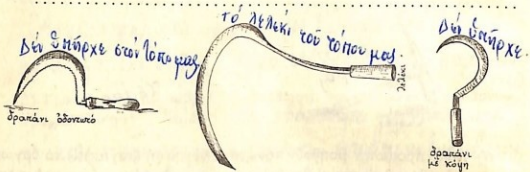 Δέν ὑπῆρχε στόν τόπο μας.
τό λελέκι τοῦ τόπου μας.
Δέν ὑπῆρχε.
δραπάνι ὀδοντωτό
λελέκι
δραπάνι
μέ κόψη